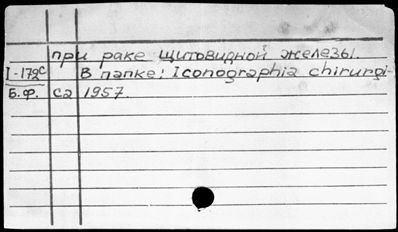 при раке щитовидной железы.
I-172c В папке: Iconographia chirurgi-
Б.Ф. са 1957.